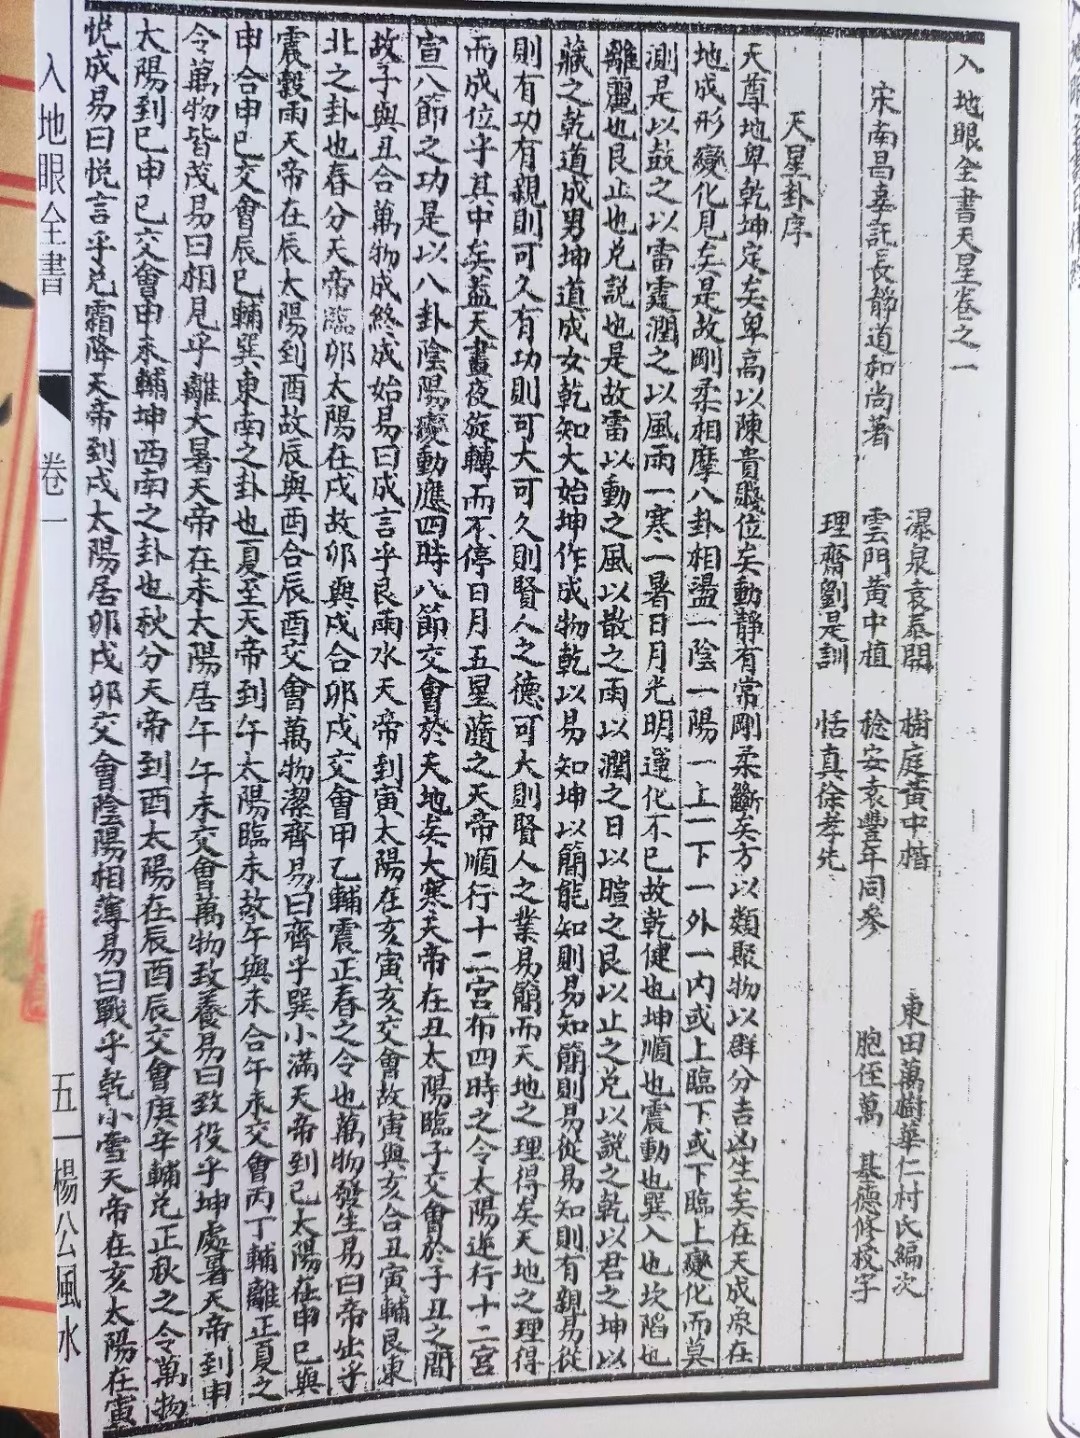 入地眼全書天星卷之一
瀑泉袁泰開 樹庭黃中楷 東田萬樹華仁村氏編次
宋南昌辜託長靜道和尚著 雲門黃中植 稔安袁豐年同參 胞侄萬 基德修校字
理齋劉是訓 恬真徐孝先
天星卦序
天尊地卑乾坤定矣卑高以陳貴賤位矣動靜有常剛柔斷矣方以類聚物以群分吉凶生矣在天成象在
地成形變化見矣是故剛柔相摩八卦相盪一陰一陽一上一下一外一內或上臨下或下臨上變化而莫
測是以鼓之以雷霆潤之以風雨一寒一暑日月光明運化不已故乾健也坤順也震動也巽入也坎陷也
離麗也艮止也兌説也是故雷以動之風以散之雨以潤之日以暄之艮以止之兌以説之乾以君之坤以
藏之乾道成男坤道成女乾知大始坤作成物乾以易知坤以簡能知則易知簡則易從易知則有親易從
則有功有親則可久有功則可大可久則賢人之德可大則賢人之業易簡而天地之理得矣天地之理得
而成位乎其中矣蓋天晝夜旋轉而不停日月五星隨之天帝順行十二宮布四時之令太陽逆行十二宮
宣八節之功是以八卦陰陽變動應四時八節交會於天地矣大寒天帝在丑太陽臨子交會於子丑之間
故子與丑合萬物成終成始易曰成言乎艮雨水天帝到寅太陽在亥寅亥交會故寅與亥合丑寅輔艮東
北之卦也春分天帝臨卯太陽在戌故卯與戌合卯戌交會甲乙輔震正春之令也萬物發生易曰帝出乎
震穀雨天帝在辰太陽到酉故辰與酉合辰酉交會萬物潔齊易曰齊乎巽小滿天帝到巳太陽在申巳與
申合申巳交會辰巳輔巽東南之卦也夏至天帝到午太陽臨未故午與未合午未交會丙丁輔離正夏之
令萬物皆茂易曰相見乎離大暑天帝在未太陽居午午未交會萬物致養易曰致役乎坤處暑天帝到申
太陽到巳申巳交會申未輔坤西南之卦也秋分天帝到酉太陽在辰酉辰交會庚辛輔兌正秋之令萬物
悅成易曰悅言乎兌霜降天帝到戌太陽居卯戌卯交會陰陽相薄易曰戰乎乾小雪天帝在亥太陽在寅
入地眼全書 卷一 五 楊公風水